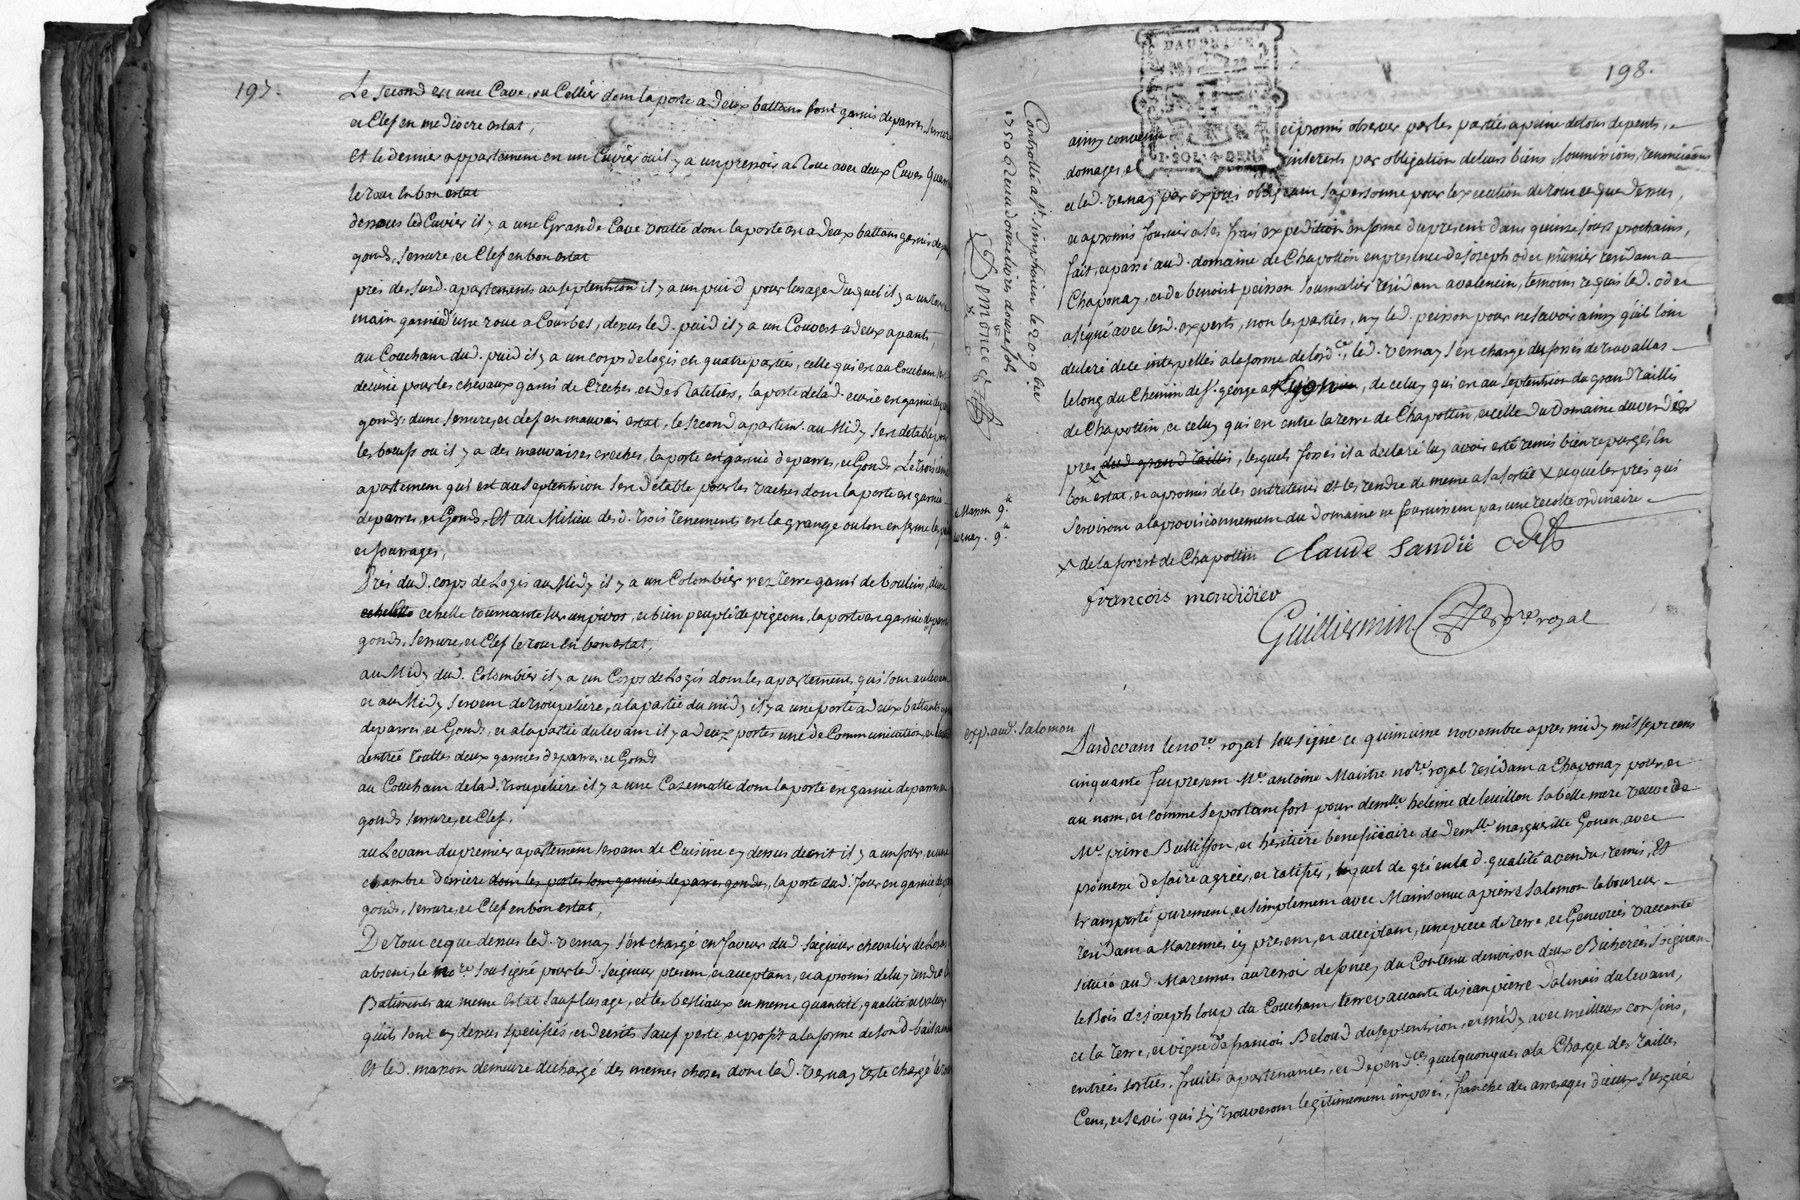 197.
Le second est une Cave, ou Cellier dont la porte a deux battans sont garnis deparres, serrure
et Clef en mediocre estat,
Et le dernier appartement en un Cuvier ou il y a un pressoir a Roue avec deux Cuves
le tout en bon estat
dessous led Cuvier il y a une Grande Cave voutée dont la porte est a deux battans garnis de
gonds, serrure, et Clef en bon estat
prés des susd. apartements au septentrion il y a un puid pour lusage duquel il y a un
main garnie d'une roue a Courbes, dessus led. puid il y a un Couvert a deux apants
au Couchant dud. puid il y a un corps de logis en quatre parties, celle qui est au Couchant
decurie pour les chevaux garni de Creches, et de Rateliers, la porte de lad. ecurie est garnie de
gonds, dune serrure, et clef en mauvais estat, le second apartem. au Midy sert detable pour
les bœufs ou il y a des mauvaises creches, la porte est garnie deparres, et Gonds, Le troisieme
apartement qui est au septentrion sert d'étable pour les vaches dont la porte est garnie
deparres, et Gonds, Et au Milieu desd. trois tenements est la grange ou lon enferme les
et fourrages,
Prés dud. corps de Logis au Midy il y a un Colombier rez terre garni de boulins, d'une
echelle tournante sur un pivot, et bien peuplé de pigeons, la porte est garnie de
gonds, serrure, et Clef le tout en bon estat,
au Midy dud. Colombier il y a un Corps de Logis dont les apartements qui sont au levant
et au Midy servent de troupeliere, a la partie du midy il y a une porte a deux battants
deparres, et Gonds, et a la partie du levant il y a deux portes une de Communication, et
dentrée toutes deux garnies deparres, et Gonds
au Couchant de lad. troupeliere il y a une Cazematte dont la porte est garnie deparres
gonds serrure, et Clef,
au Levant du premier apartement servant de Cuisine cy dessus decrit il y a un four, et une
chambre derriere dont les portes sont garnies deparres gonds, la porte dud. four est garnie de
gonds, serrure, et Clef en bon estat,
De tout ce que dessus led. vernay s'est chargé en faveur dud. seigneur chevalier de
absent, le no.re soussigné pour led. seigneur present, et acceptant, et a promis de luy rendre
Batiments au meme estat sauf lusage, et les bestiaux en meme quantité, qualité et valeur
quils sont cy dessus specifiés, et decrits sauf perte, et profit a la forme de sond. bail
Et led. masson demeure dechargé des memes choses dont led. vernay reste chargé
198.
DAUPHINE
1. SOL. 4. DEN.
Controllé a st simphorien le 20 9bre
1750 Reçu douze sols
Demonceis
Masson 9.
vernay. 9.
ainsy convenu et promis observer par les parties a peine de tous depents,
domages, et interests par obligation de leurs biens soumissions, renonciations
et led. vernay par expres obligeant sa personne pour lexecution de tout ce que dessus,
et a promis fournir a ses frais expedition en forme du present dans quinze jours prochains,
fait, et passé aud. domaine de Chapottin en presence de joseph odet mûnier residant a
Chaponay, et de benoist peisson journalier residant a valencin, temoins requis led. odet
a signé avec lesd. experts, non les parties, ny led. peisson pour ne savoir ainsy quils l'ont
declaré de ce interpellés a la forme de lord.ce, led. vernay s'en charge des fossés de travallas
le long du Chemin de st. george a Lyon, de celuy qui est au septentrion du grand taillis
de Chapottin, et celuy qui est entre la terre de Chapottin, et celle du Domaine
pres dud grand taillis, lesquels fossés il a declaré luy avoir esté remis bien repurgés En
bon estat, et a promis de les entretenir et les rendre de meme a la sortie x et que les prés qui
serviront a la provisionnement du domaine ne fournissent pas une recolte ordinaire
x de la forest de Chapottin Claude Sandie Odet
francois mondidier
Guilliermin No.re royal
exp. aud. salomon
Pardevant le no.re royal soussigné ce quinzaine novembre apres midy mil sept cens
cinquante fut present M.e antoine Maitre no.re royal residant a Chaponay pour, et
au nom, et comme se portant fort pour dem.lle heleine deleuillon sa belle mere veuve de
M.e pierre Bullisson, et heritiere beneficiaire de dem.lle marguerite Gonon, avec
promesse de faire agréer, et ratifier, lequel de gré en lad. qualité a vendu, remis, Et
transporté purement, et simplement avec Maintenue a pierre salomon laboureur
residant a Marennes icy present, et acceptant, une piece de terre, et Genevrées vaccante
située aud. Marennes au terroir de foncey du Contenu denviron deux Bicherées joignant
le Bois de joseph loup du Couchant, terre vaccante de jean pierre Dalmais du levant,
et la terre, et vigne de francois Beloud du septentrion, et midy avec meilleurs confins,
entrées sorties, fruits apartenances, et depend.ces quelquonques a la Charge des tailles
Cens, et servis qui s'y trouveront legitimement imposés, franche des arrerages d'iceux jusqua